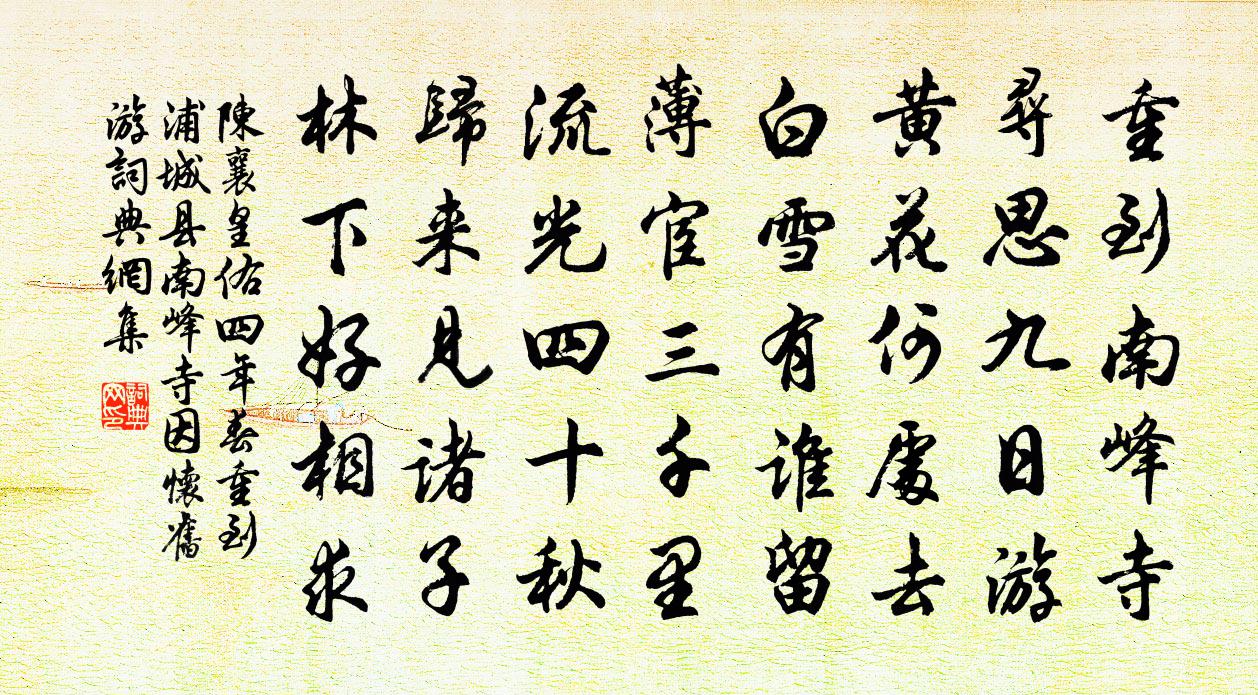 重到南峰寺
尋思九日游
黄花何處去
白雪有誰留
薄宦三千里
流光四十秋
歸来見諸子
林下好相求
陳襄皇佑四年春重到
浦城县南峰寺因懷舊
游詞典網集
詞典
网印